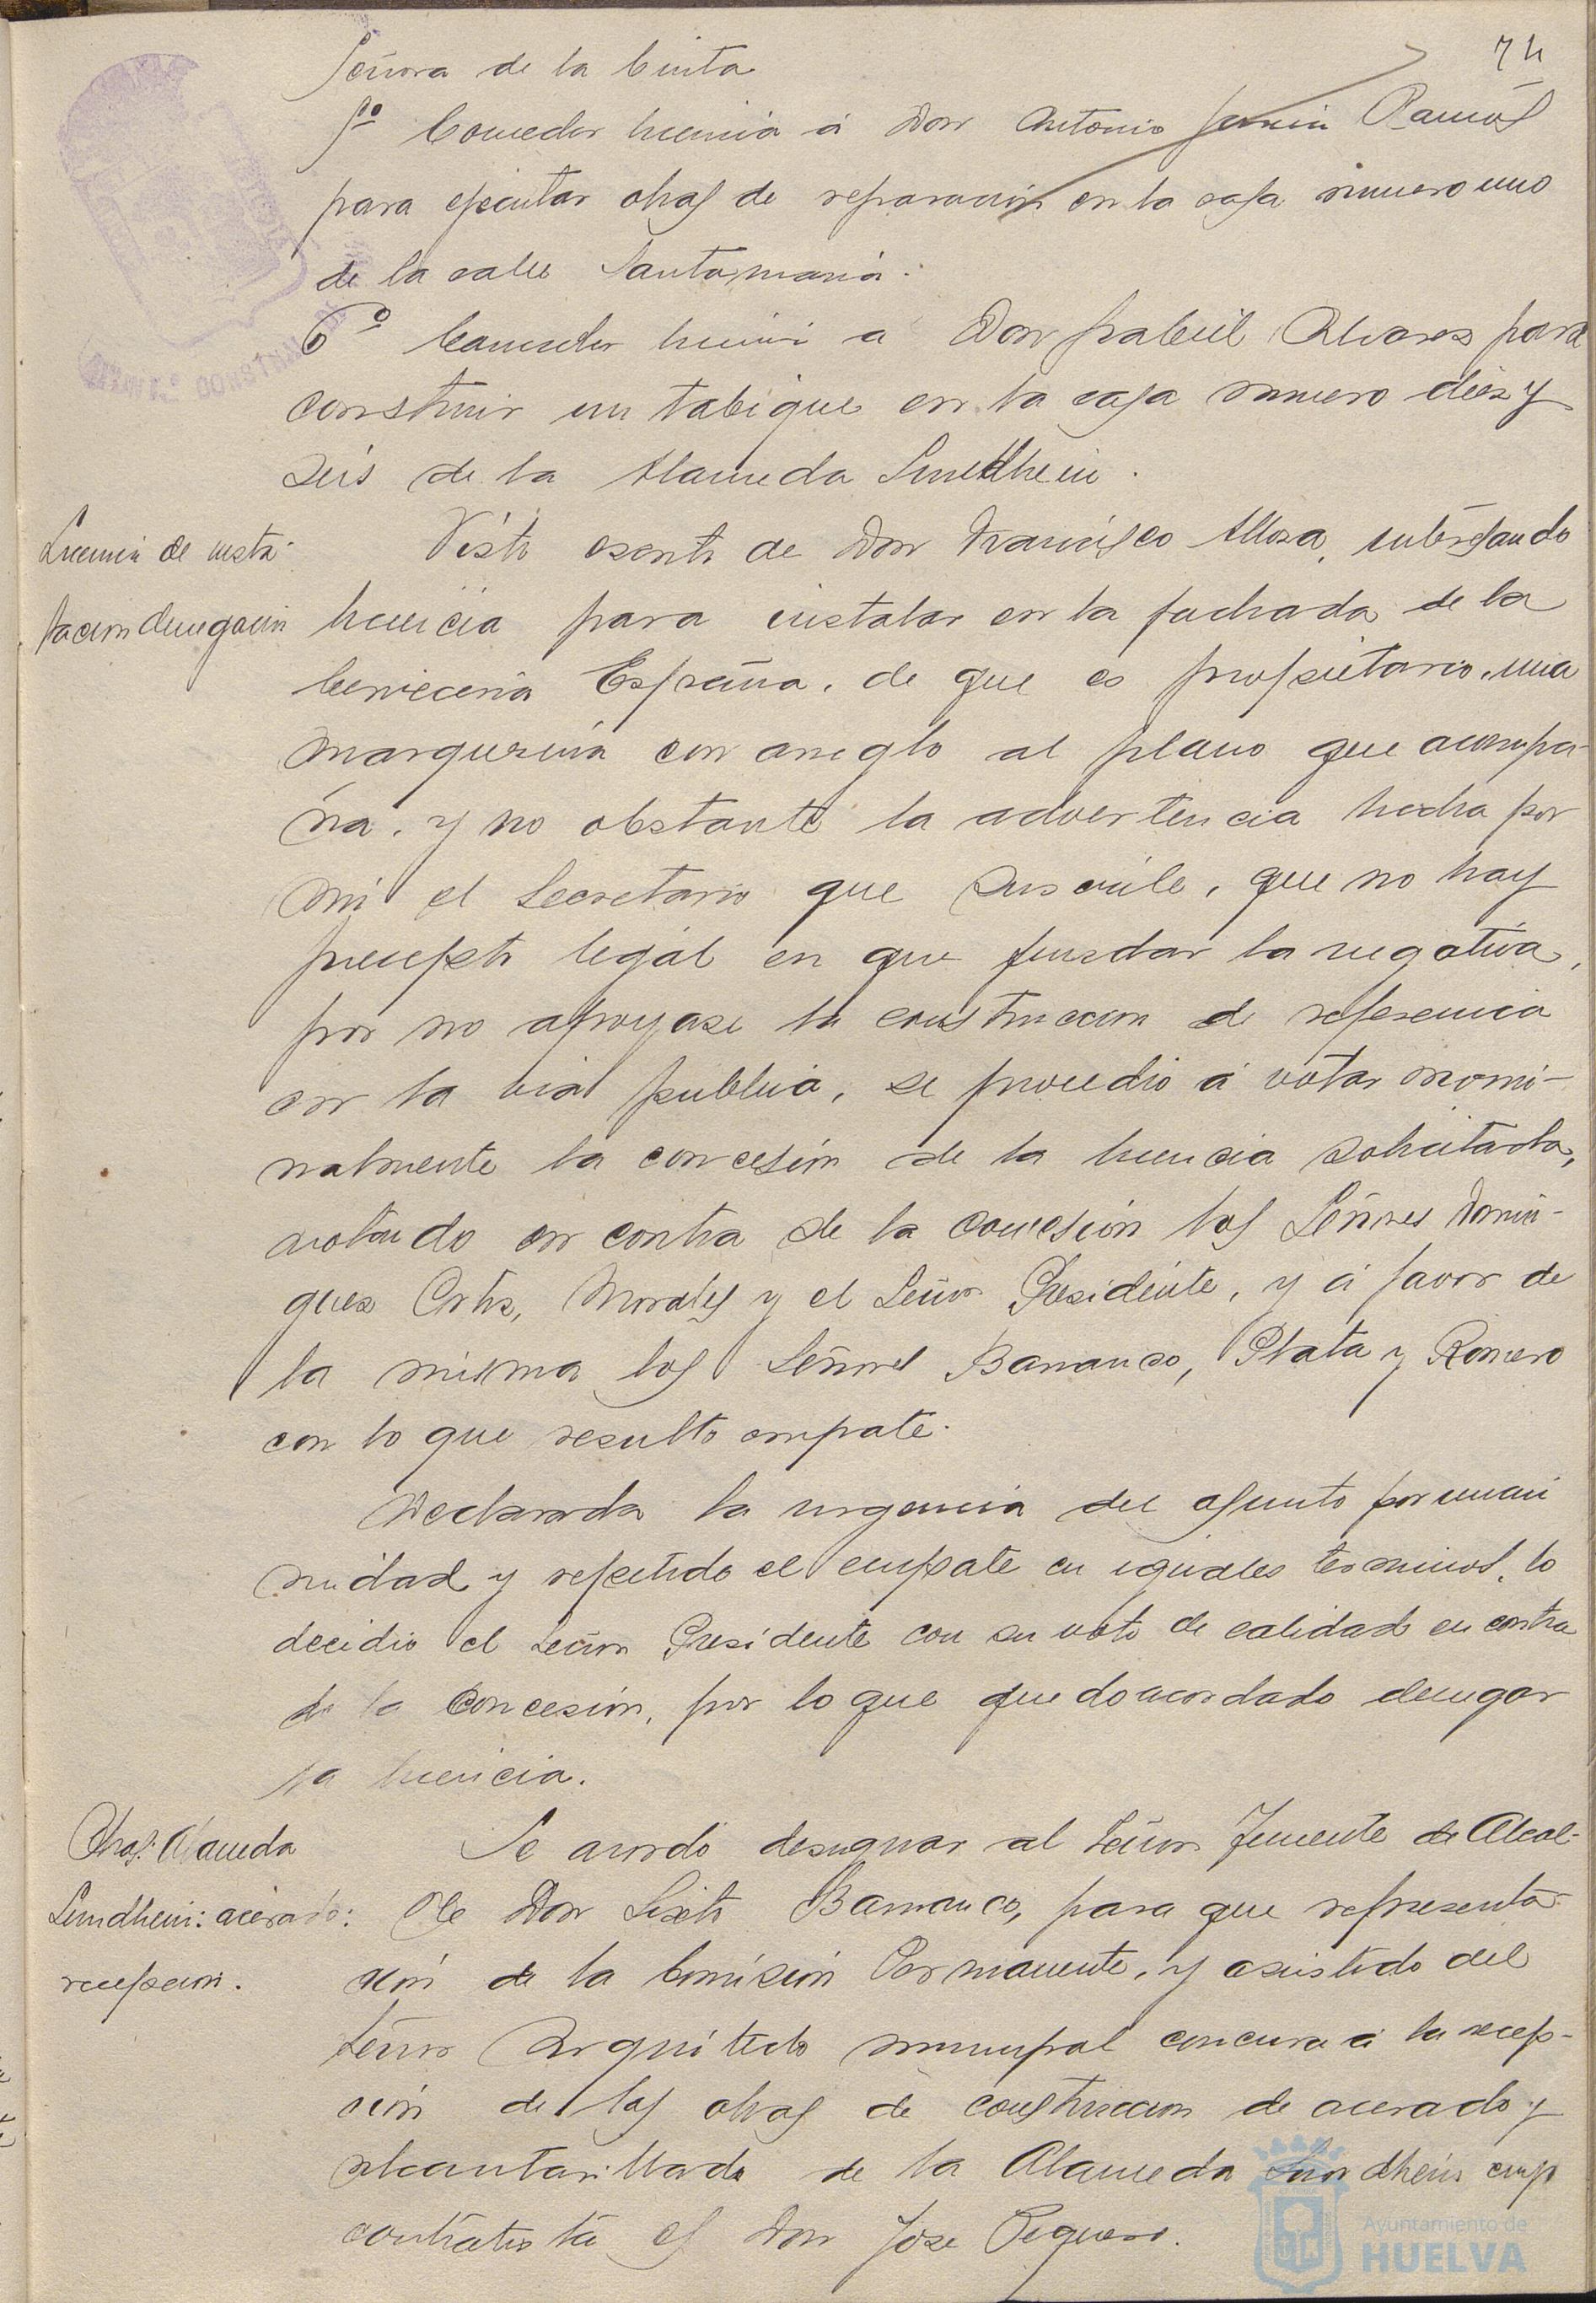 74
Señora de la Cinta
5º Conceder licencia á Don Antonio Ramos
para ejecutar obras de reparación en la casa número uno
de la calle Santa maria.
6º Conceder licencia a Don Gabriel Alvarez para
construir un tabique en la casa número diez y
seis de la Alameda Sundheim.
Licencia de insta-
lacion denegacion
Visto escrito de Don Francisco Allosa, interesando
licencia para instalar en la fachada de la
Cervecería España, de que es propietario, una
marquesina con arreglo al plano que acompa-
ña, y no obstante la advertencia hecha por
mi el Secretario que suscribe, que no hay
precepto legal en que fundar la negativa,
por no apoyase la construccion de referencia
en la via publica, se procedio á votar nomi-
nalmente la concesión de la licencia solicitada,
votando en contra de la concesión los Señores Domin-
guez Ortiz, Morales y el Señor Presidente, y á favor de
la misma los Señores Barranco, Plata y Romero
con lo que resulto empate.
Declarada la urgencia del asunto por unani
midad y repetido el empate en iguales terminos, lo
decidio el Señor Presidente con su voto de calidad en contra
de la Concesión, por lo que quedo acordado denegar
la licencia.
Obras Alameda
Sundheim: acerado:
recepcion.
Se acordó designar al Señor Teniente de Alcal-
de Don Sixto Barranco, para que representa
ción de la Comisión Permanente, y asistido del
Señor Arquitecto municipal concurra á la recep-
ción de las obras de construccion de acerado y
alcantarillado de la Alameda Sundheim cuyo
contratista es Don Jose Peguero.
Ayuntamiento de
HUELVA